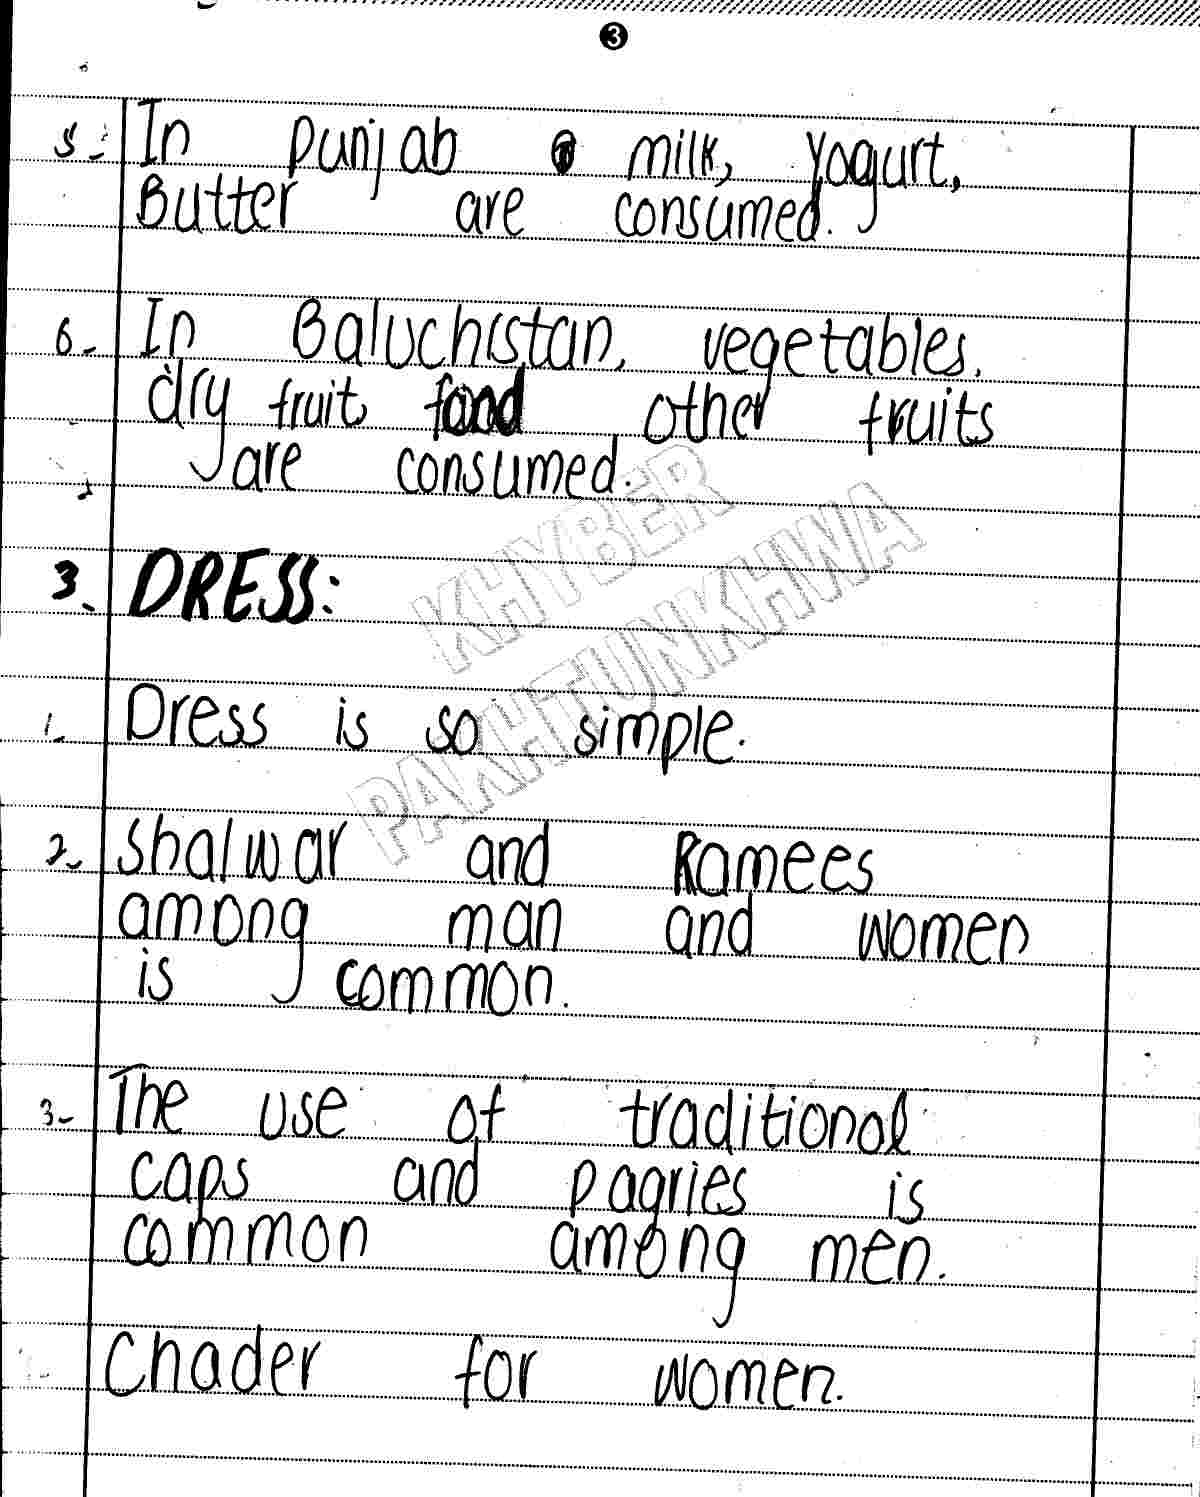 3
5- In Punjab milk, Yogurt,
Butter are consumed.
6- In Baluchistan, vegetables,
dry fruit, and other fruits
are consumed.
KHYBER
PAKHTUNKHWA
3. DRESS:
1. Dress is so simple.
2. Shalwar and Kamees
among man and women
is common.
3- The use of traditional
caps and pagries is
common among men.
Chader for women.